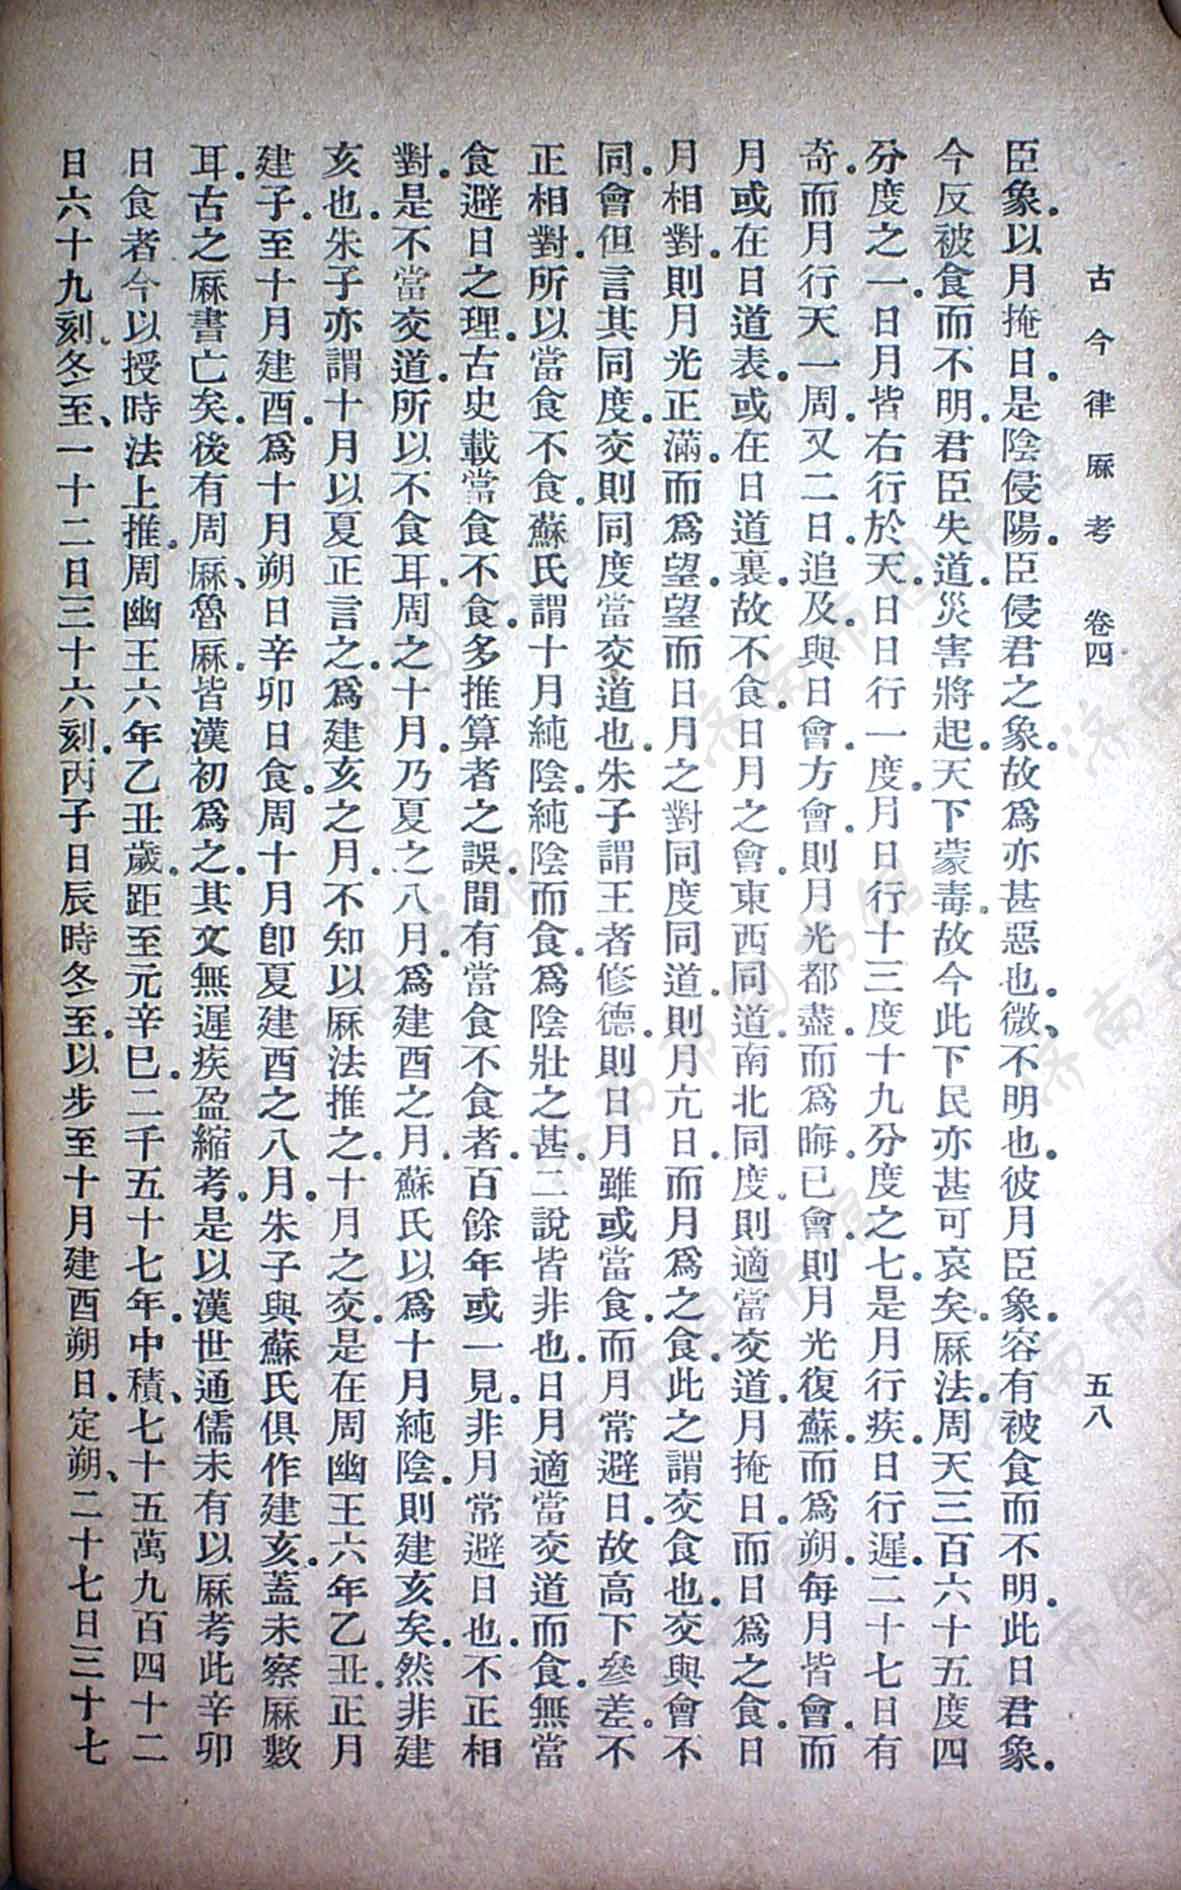 古今律厤考　卷四　五八
臣象。以月掩日。是陰侵陽。臣侵君之象。故爲亦甚惡也。微、不明也。彼月臣象。容有被食而不明。此日君象。
今反被食而不明。君臣失道。災害將起。天下蒙毒。故今此下民亦甚可哀矣。厤法。周天三百六十五度四
分度之一。日月皆右行於天。日日行一度。月日行十三度十九分度之七。是月行疾。日行遲。二十七日有
奇而月行天一周。又二日。追及與日會。方會。則月光都盡。而爲晦。已會。則月光復蘇。而爲朔。每月皆會。而
月或在日道表。或在日道裏。故不食。日月之會。東西同道。南北同度。則適當交道。月掩日。而日爲之食。日
月相對。則月光正滿。而爲望。望而日月之對同度同道。則月亢日。而月爲之食。此之謂交食也。交與會不
同。會但言其同度。交則同度當交道也。朱子謂王者修德。則日月雖或當食。而月常避日。故高下參差。不
正相對。所以當食不食。蘇氏謂十月純陰。純陰而食。爲陰壯之甚。二說皆非也。日月適當交道而食。無當
食避日之理。古史載當食不食。多推算者之誤。間有當食不食者。百餘年或一見。非月常避日也。不正相
對。是不當交道。所以不食耳。周之十月。乃夏之八月。爲建酉之月。蘇氏以爲十月純陰。則建亥矣。然非建
亥也。朱子亦謂十月以夏正言之。爲建亥之月。不知以厤法推之。十月之交。是在周幽王六年乙丑。正月
建子。至十月建酉。爲十月朔日辛卯日食。周十月卽夏建酉之八月。朱子與蘇氏俱作建亥。蓋未察厤數
耳。古之厤書亡矣。後有周厤、魯厤。皆漢初爲之。其文無遲疾盈縮考。是以漢世通儒未有以厤考此辛卯
日食者。今以授時法上推。周幽王六年乙丑歲。距至元辛巳。二千五十七年。中積、七十五萬九百四十二
日六十九刻。冬至、一十二日三十六刻。丙子日辰時冬至。以步至十月建酉朔日。定朔、二十七日三十七